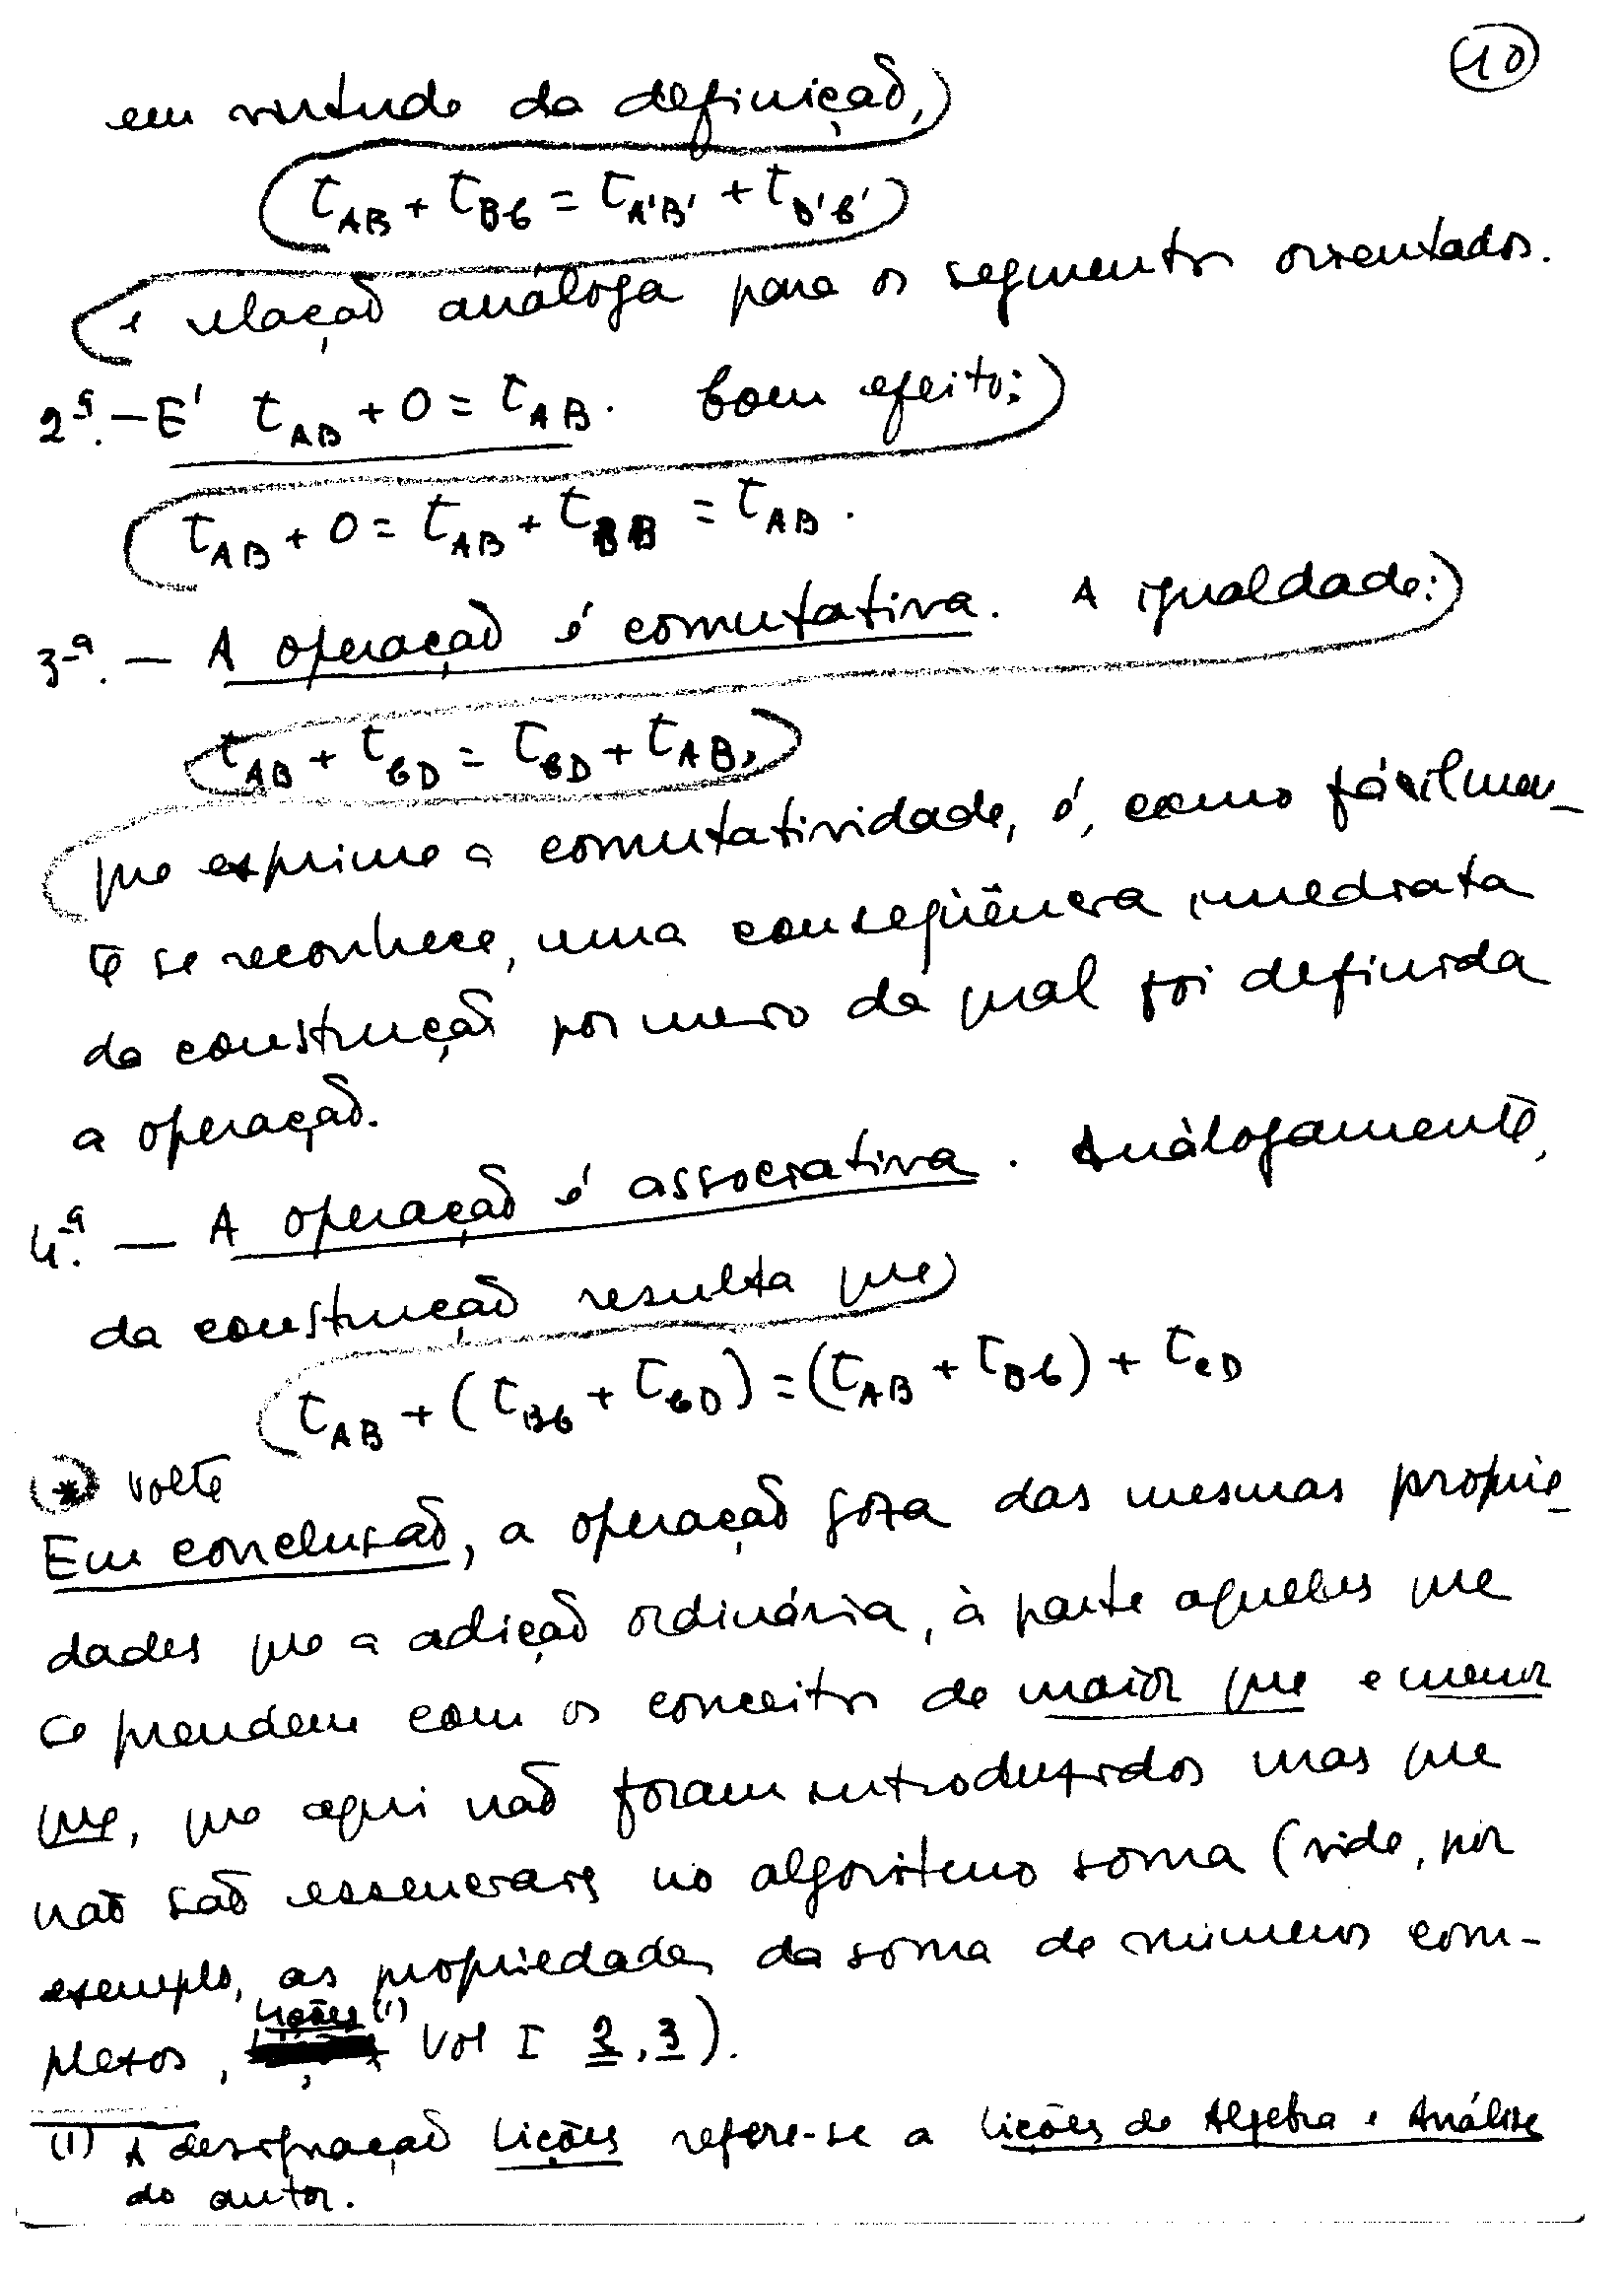 10
em virtude da definição,
τ_AB + τ_BC = τ_A'B' + τ_B'C'
e relação análoga para os segmentos orientados.
2ª. — E' τ_AB + 0 = τ_AB. Com efeito:
τ_AB + 0 = τ_AB + τ_BB = τ_AB.
3ª. — A operação é comutativa. A igualdade:
τ_AB + τ_CD = τ_CD + τ_AB,
que exprime a comutatividade, é, como fàcilmen-
te se reconhece, uma conseqüência imediata
da construção por meio da qual foi definida
a operação.
4ª. — A operação é associativa. Anàlogamente,
da construção resulta que
τ_AB + (τ_BC + τ_CD) = (τ_AB + τ_BC) + τ_CD
* volte
Em conclusão, a operação goza das mesmas proprie-
dades que a adição ordinária, à parte aquelas que
se prendem com os conceitos de maior que e menor
que, que aqui não foram introduzidos mas que
não são essenciais no algoritmo soma (vide, por
exemplo, as propriedades da soma de números com-
plexos, Lições (1) Vol I 2, 3).
(1) A designação Lições refere-se a Lições de Algebra e Análise
do autor.